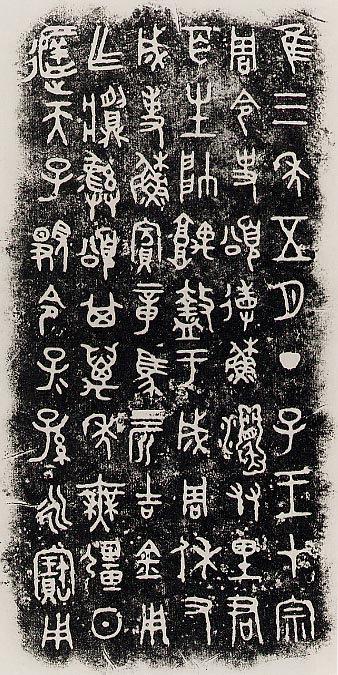 隹三年五月丁巳王才宗
周令史頌省穌友里君
百生帥盩于成周休又
成事穌賓章馬四匹吉金用
乍彝頌其萬年無彊日
天子令子子孫孫永寶用